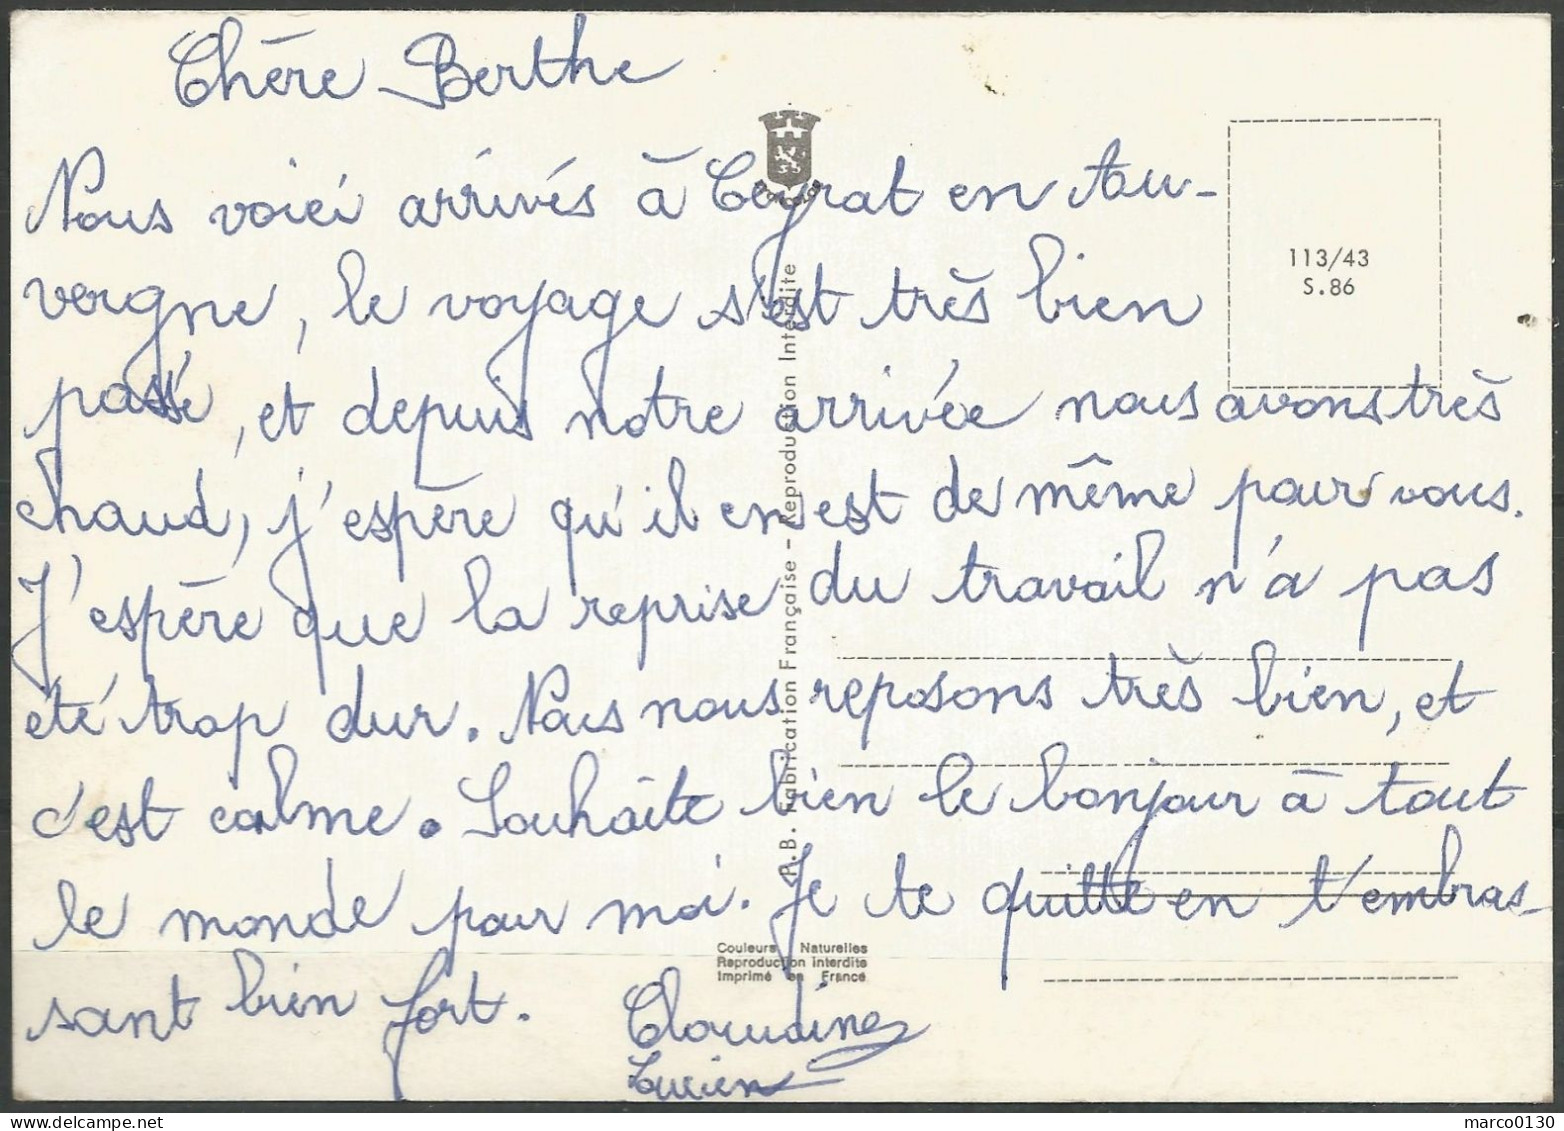 Chère Berthe
Nous voici arrivés à Ceyrat en Au-
vergne, le voyage s'est très bien
passé, et depuis notre arrivée nous avons très
chaud, j'espère qu'il en est de même pour vous.
J'espère que la reprise du travail n'a pas
été trop dur. Nous nous reposons très bien, et
c'est calme. Souhaite bien le bonjour à tout
le monde pour moi. Je te quitte en t'embras-
sant bien fort. Claudine
Lucien
113/43
S.86
R.B. Fabrication Française - Reproduction Interdite
Couleurs Naturelles
Reproduction interdite
Imprimé en France
marco0130